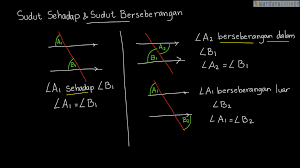 Sudut Sehadap & Sudut Berseberangan
A₁
B₁
∠A₁ sehadap ∠B₁
∠A₁ = ∠B₁
A₂
B₁
∠A₂ berseberangan dalam
∠B₁
∠A₂ = ∠B₁
A₁
B₂
∠A₁ berseberangan luar
∠B₂
∠A₁ = ∠B₂